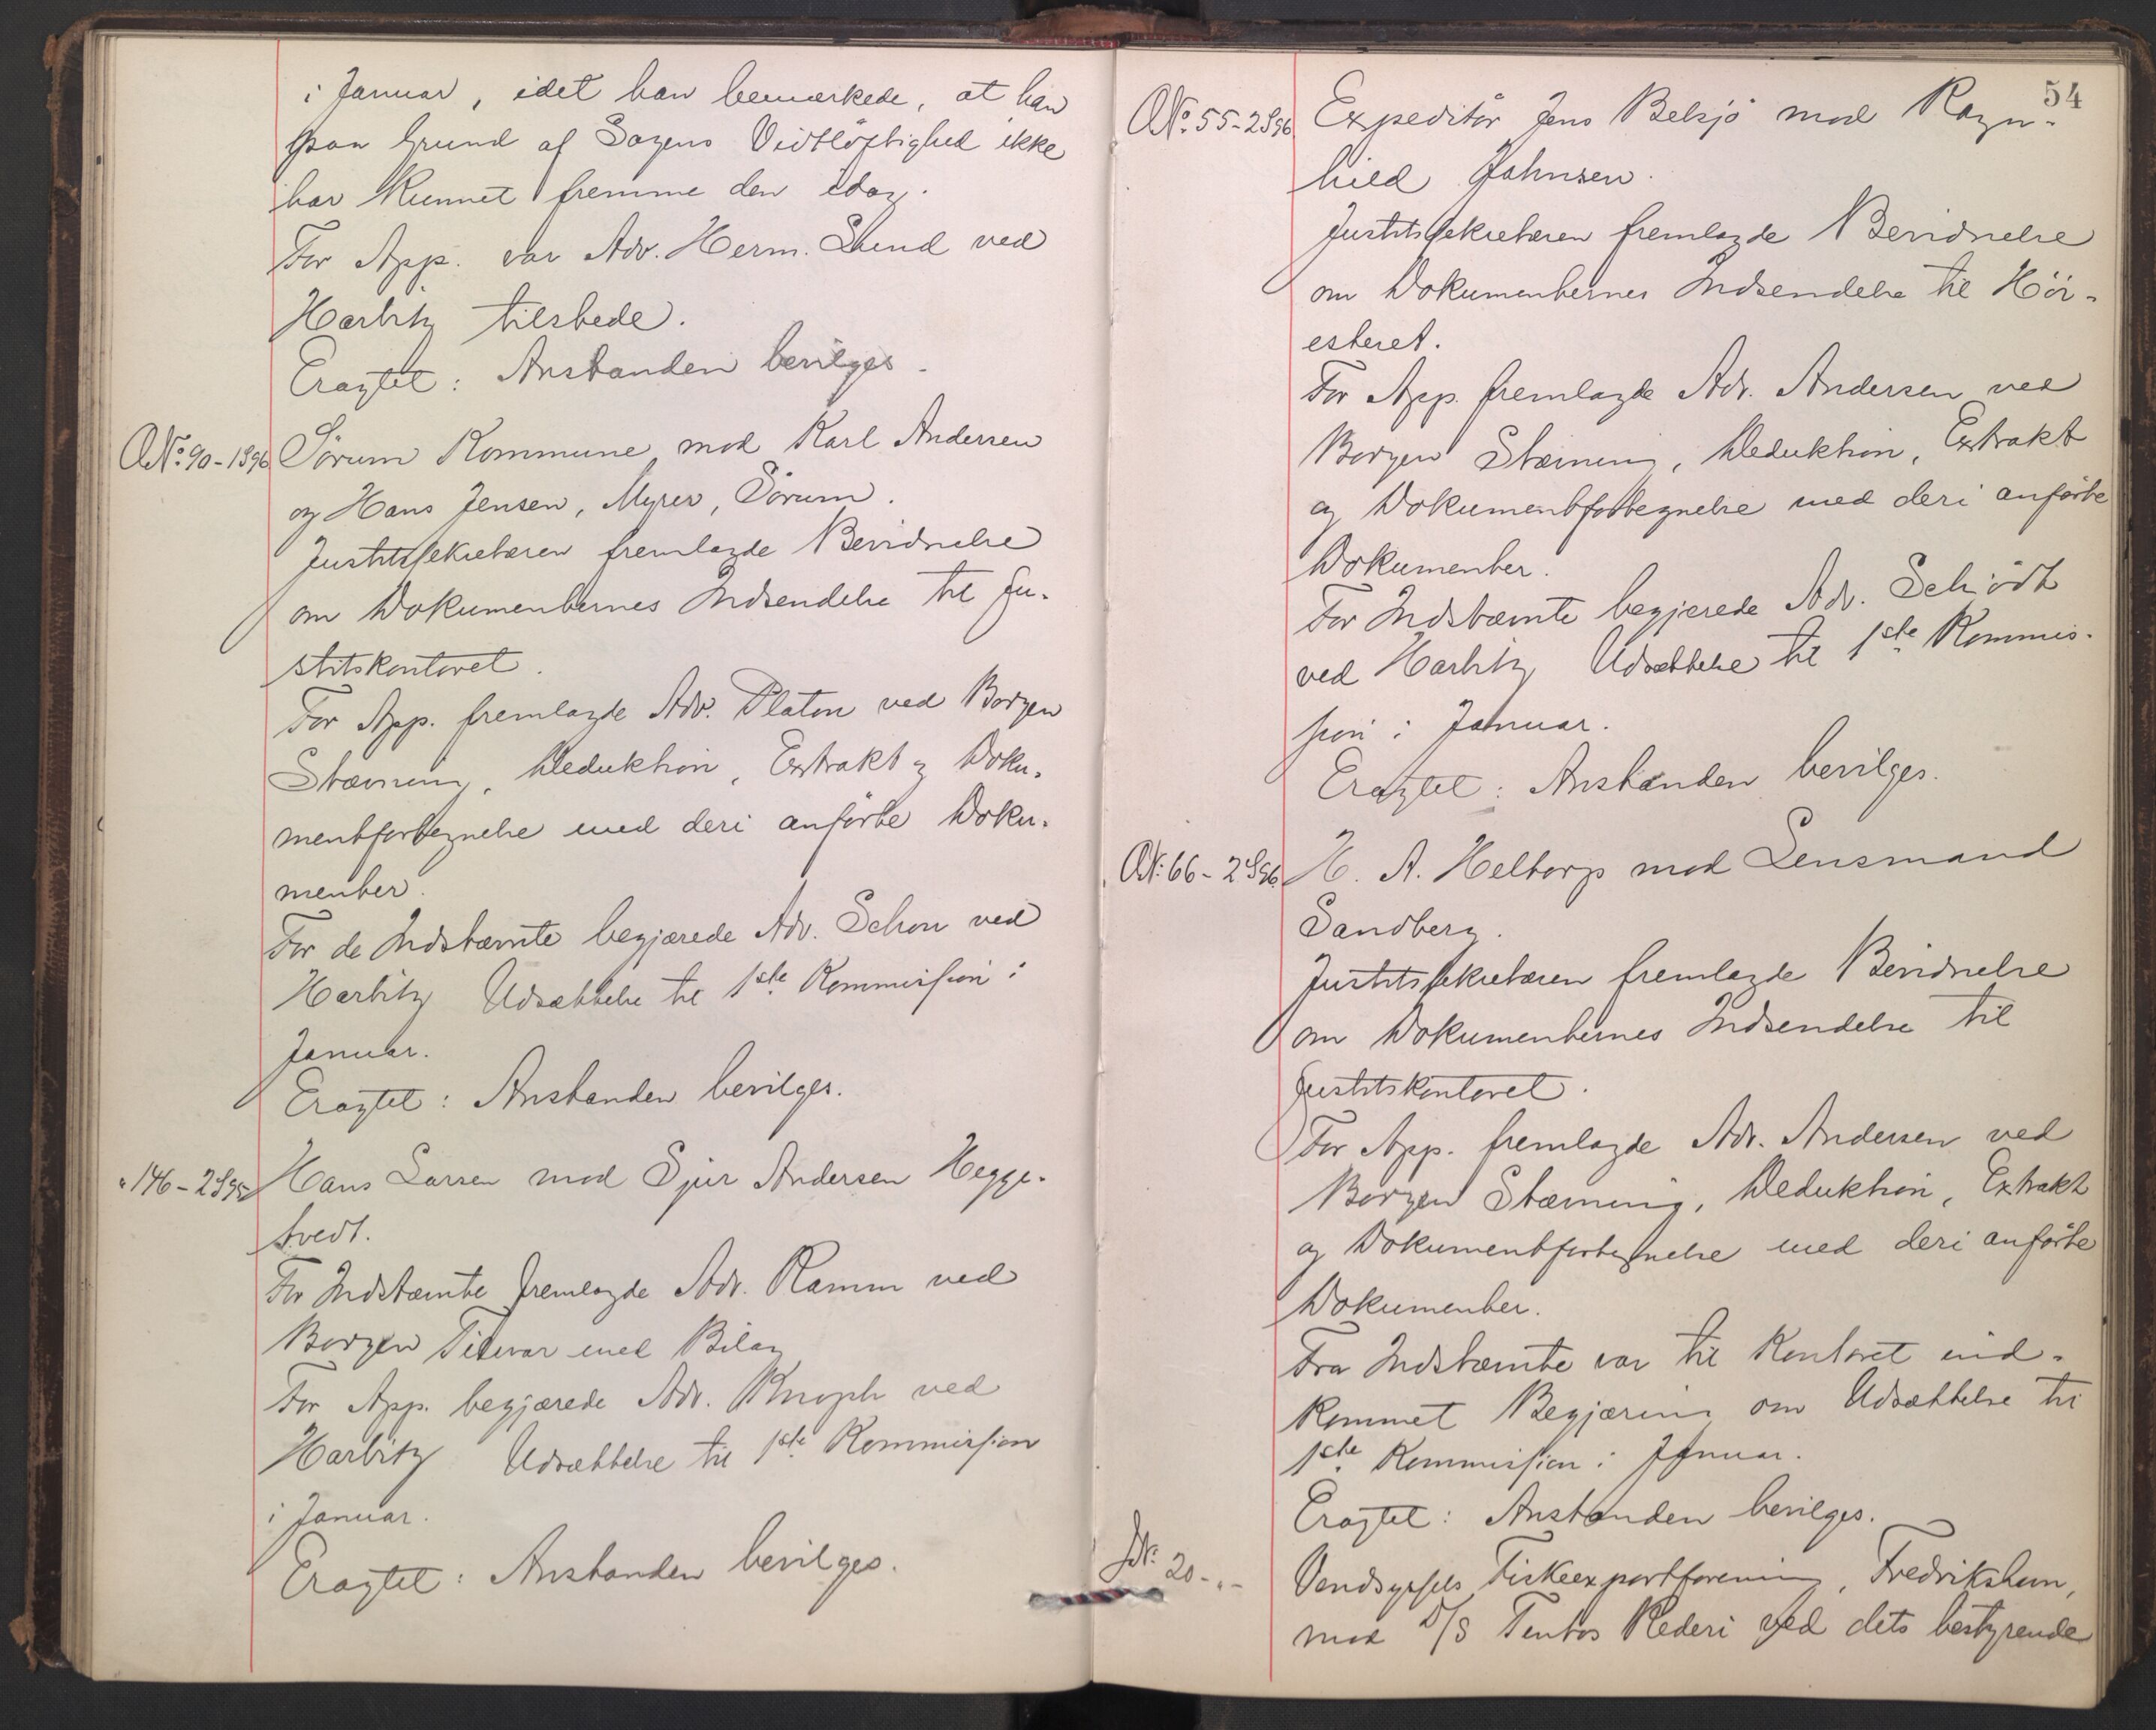 i Januar, idet han bemærkede, at han
paa Grund af Sagens Vidtløftighed ikke
har kunnet fremme den idag.
For App. var Adv. Herm. Lund ved
Harbitz tilstede.
Eragtet: Anstanden bevilges.
No. 90-1896 Sørum Kommune mod Karl Andersen
og Hans Jensen, Myrer, Sørum.
Justitssekretæren fremlagde Bevidnelse
om Dokumenternes Indsendelse til Ju-
stitskontoret.
For App. fremlagde Adv. Platou ved Borgen
Stævning, Deduktion, Extrakt og Doku-
mentfortegnelse med deri anførte Doku-
menter.
For de Indstævnte begjærede Adv. Schou ved
Harbitz Udsættelse til 1ste Kommission i
Januar.
Eragtet: Anstanden bevilges.
" 146-2S95 Hans Larsen mod Sjur Andersen Hegge-
tvedt.
For Indstævnte fremlagde Adv. Ramm ved
Borgen Tilsvar med Bilag
For App. begjærede Adv. Knoph ved
Harbitz Udsættelse til 1ste Kommission
i Januar.
Eragtet: Anstanden bevilges.
54
No. 55-2S96 Expeditør Jens Belsjø mod Ragn-
hild Johnsen.
Justitssekretæren fremlagde Bevidnelse
om Dokumenternes Indsendelse til Høi-
esteret.
For App. fremlagde Adv. Andersen ved
Borgen Stævning, Deduktion, Extrakt
og Dokumentfortegnelse med deri anførte
Dokumenter.
For Indstævnte begjærede Adv. Schiødt
ved Harbitz Udsættelse til 1ste Kommis-
sion i Januar.
Eragtet: Anstanden bevilges.
N: 66-2S96 H. A. Heltorp mod Lensmand
Sandberg.
Justitssekretæren fremlagde Bevidnelse
om Dokumenternes Indsendelse til
Justitskontoret.
For App. fremlagde Adv. Andersen ved
Borgen Stævning, Deduktion, Extrakt
og Dokumentfortegnelse med deri anførte
Dokumenter.
Fra Indstævnte var til Kontoret ind-
kommet Begjæring om Udsættelse til
1ste Kommission i Januar.
Eragtet: Anstanden bevilges.
20 - " - Vendsyssels Fiskeexportforening, Fredrikshavn,
mod D/S Tentos Rederi ved dets bestyrende